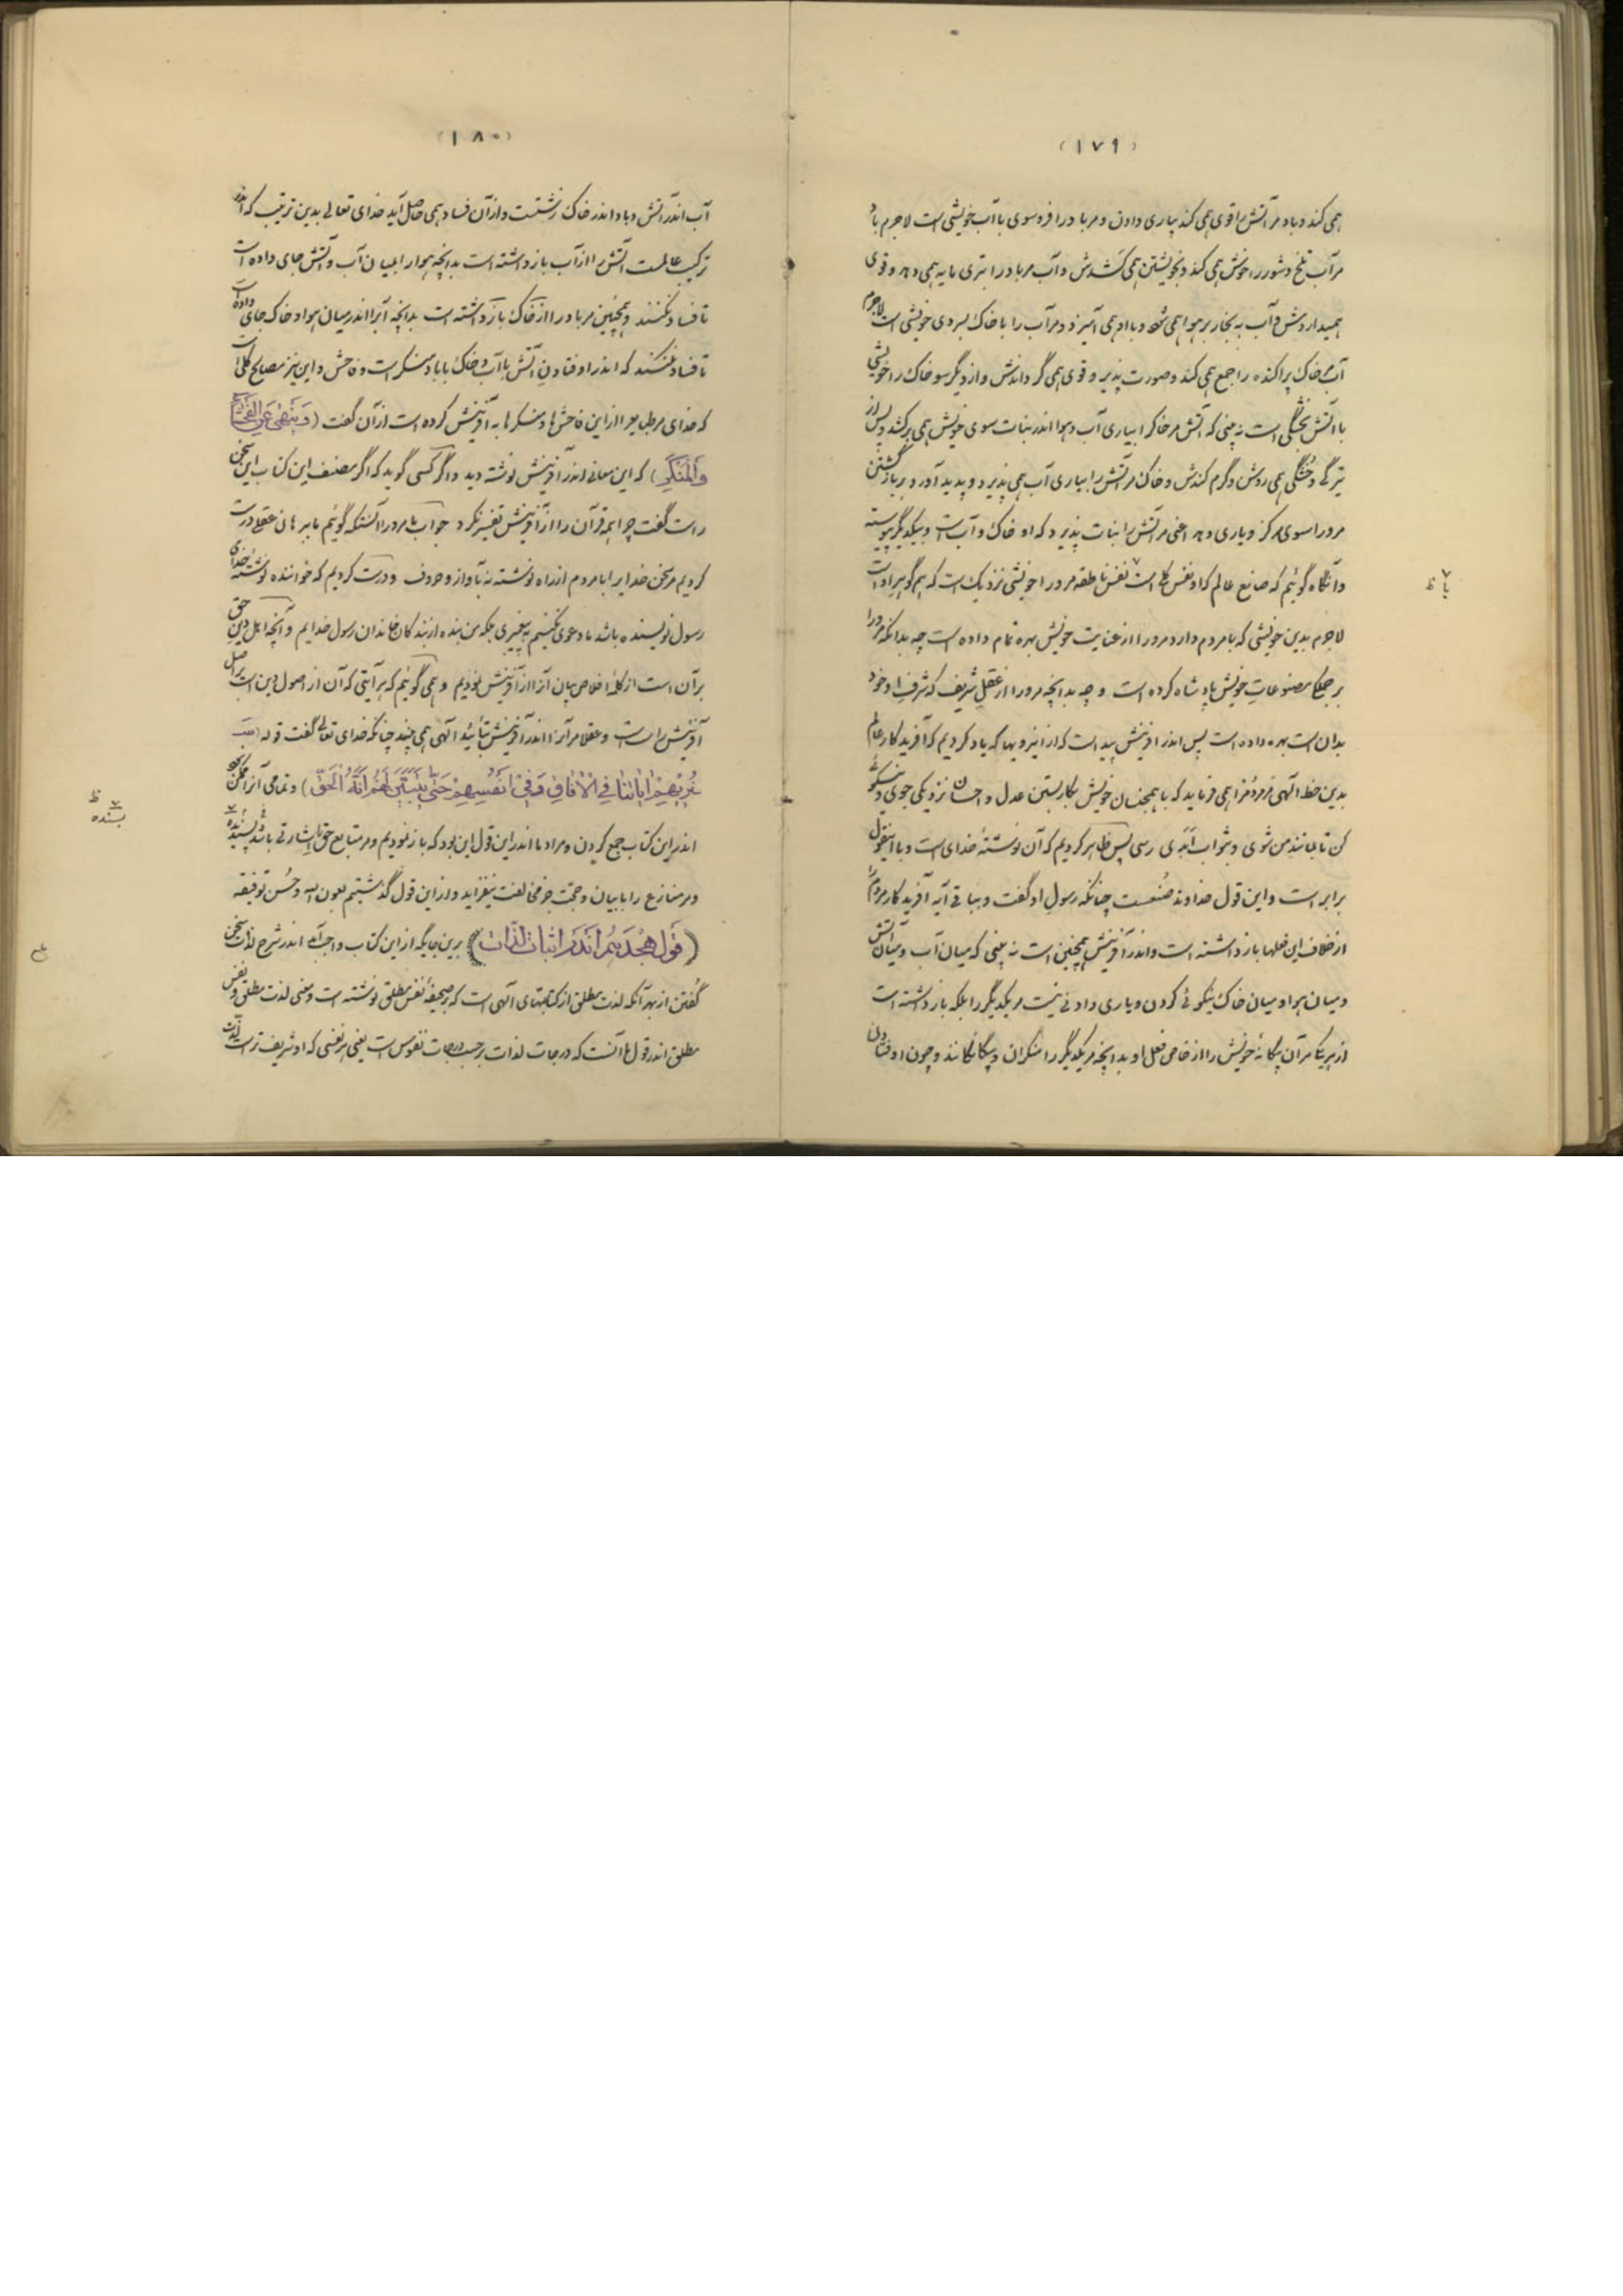 (۱۷۹)
همی کند و باد مر آتش را قوی همی کند بیاری دادن و مر باد را فروسوی با آب خویشی است لاجرم باد
مر آب تلخ و شور را خوش همی کند و بخویشتن همی کشدش و آب مر باد را بتری مایه همی دهد و قوی
همیداردش و آب به بخار بر هوا همی شود و با او همی آمیزد و مر آب را با خاک بسردی خویشی است لاجرم
آب مر خاک پراکنده را جمع همی کند و صورت پذیر و قوی همی گرداندش و از دیگر سو خاک را خویشی
با آتش بخشکی است نه بینی که آتش مر خاک را بیاری آب و هوا اندر نبات سوی خویش همی برکشد و پس از
تیرگی و خشکی همی روشن و گرم کندش و خاک مر آتش را بیاری آب همی پذیرد و پدید آورد بر بازگشتن
مرورا سوی مرکز و یاری دهد اعنی مر آتش را نبات پذیرد که او خاک و آب است و بیکدیگر پیوسته
وآنگاه گوئیم که صانع عالم که او نفس کلی است نفس ناطقه مرورا خویشی نزدیک است که هم گوهر اوست
لاجرم بدین خویشی که با مردم دارد مرورا از عنایت خویش بهره تمام داده است چه بدانکه مرورا
بر جملگی مصنوعات خویش پادشاه کرده است و چه بدانچه مرورا از عقل شریف که شرف او خود
بدان است بهره داده است پس اندر آفرینش پیداست که از این رویها که یاد کردیم که آفریدگار عالم
بدین خط الهی مر مردم را همی فرماید که با همجنسان خویش بکار بستن عدل و احسان نزدیکی جوی و نیکوئی
کن تا مانند من شوی و بثواب ابدی رسی پس ظاهر کردیم که آن نوشتهٔ خدای است و با این قول
برابر است و این قول خداوند صُنعست چنانکه رسول او گفت و بباقی آیه آفریدگار مردم را
از خلاف این فعلها باز داشته است و اندر آفرینش همچنین است نه بینی که میان آب و میان آتش
و میان هوا و میان خاک نیکوئی کردن و یاری دادنی نیست مر یکدیگر را بلکه باز داشته است
از هر یک مر آن بیگانهٔ خویش را از خاص فعل او بدانچه مر یکدیگر را منکران و بیگانگانند و چون اوفتادن
یا ظ
(۱۸۰)
آب اندر آتش و باد اندر خاک زشتست و از آن فساد همی حاصل آید خدای تعالی بدین ترتیب که اندر
ترکیب عالمست آتش را از آب باز داشته است بدانچه هوا را بمیان آب و آتش جای داده است
تا فساد نکنند و همچنین مر باد را از خاک باز داشته است بدانچه آب را اندر میان هوا و خاک جای داده است
تا فساد نکنند که اندر اوفتادن آتش با آب و خاک با باد منکر است و فاحش و این نیز مصالح کلی است
که خدای مر طبایع را از این فاحشها و منکرها به آفرینش کرده است از آن گفت (وَيَنْهىٰ عَنِ الفَحْشاءِ
وَالْمُنْكَرِ) که این معانی اندر آفرینش نوشته دید و اگر کسی گوید که اگر مصنف این کتاب این سخن
راست گفت چرا همه قرآن را از آفرینش تفسیر نکرد جواب ما مرورا آنستکه گوئیم ما ببرهانی عقلی درست
کردیم مر سخن خدایرا با مردم از راه نوشته نه بآواز و حروف و درست کردیم که خواننده نوشتهٔ خدای
رسول نویسنده باشد ما دعوی نکنیم به پیغمبری بلکه من بنده از بندگان خاندان رسول خدایم و آنچه اهل دین حق
بر آن است از کلمهٔ اخلاص بیان آنرا از آفرینش نمودیم و همی گوئیم که هر آیتی که آن از اصول دین است بر اصل
آفرینش راست است و عقلا مر آنرا اندر آفرینش بتأئید الهی همی بینند چنانکه خدای تعالی گفت قوله (
سَنُرِيهِمْ اٰيَاتِنَا فِي الْاٰفَاقِ وَفِي أَنْفُسِهِمْ حَتّٰى يَتَبَيَّنَ لَهُمْ أَنَّهُ الْحَقّ) و تمامی آنرا ممکن نبود
اندر این کتاب جمع کردن و مراد ما اندر این قول این بود که باز نمودیم و مر متابع حق را اشارتی باشد پسنده
و مر منازع را با بیان و حجت جز مخالفت نیفزاید و از این قول گذشتیم بعون الله و حُسن توفیقه
(قول هجدهم اندر اثبات لذّات) برین جایگه از این کتاب واجب آمد اندر شرح لذت سخن
گفتن از بهر آنکه لذت مطلق از کتابتهای الهی است که بر صحیفهٔ نفس مطلق نوشته است و معنی لذت مطلق و نفس
مطلق اندر قول ما آنست که درجات لذات بر حسب درجات نفوس است یعنی هر نفسی که او شریف تر است لذت
بسنده ظ